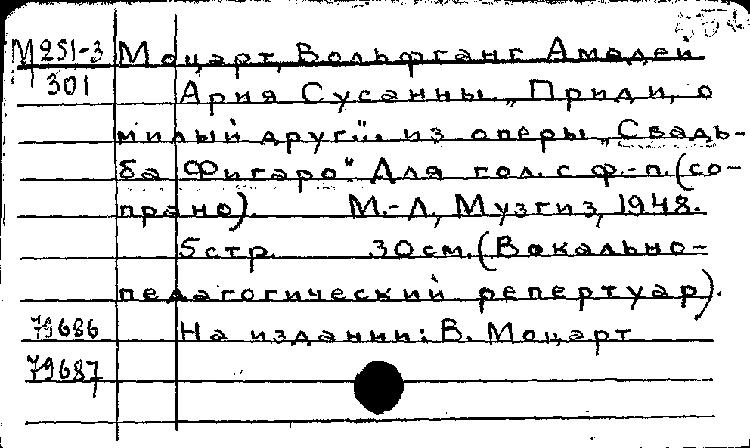 М251-3 Моцарт, Вольфганг Амадей
301 Ария Сусанны „Приди, о
милый друг!". из оперы „Свадь-
ба Фигаро" Для гол. с ф.-п. (со-
прано). М.-Л., Музгиз, 1948.
5 стр. 30 см. (Вокально-
педагогический репертуар).
79686 На издании: В. Моцарт
79687